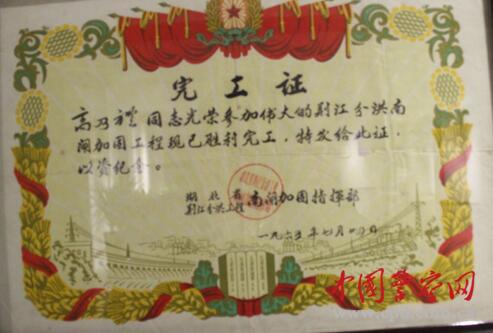 完工证
高乃禮同志光荣参加伟大的荆江分洪南
闸加固工程现已胜利完工，特发给此证，
以资纪念。
湖北省
荆江分洪工程 南闸加固指挥部
一九六五年七月 日
中国警察网